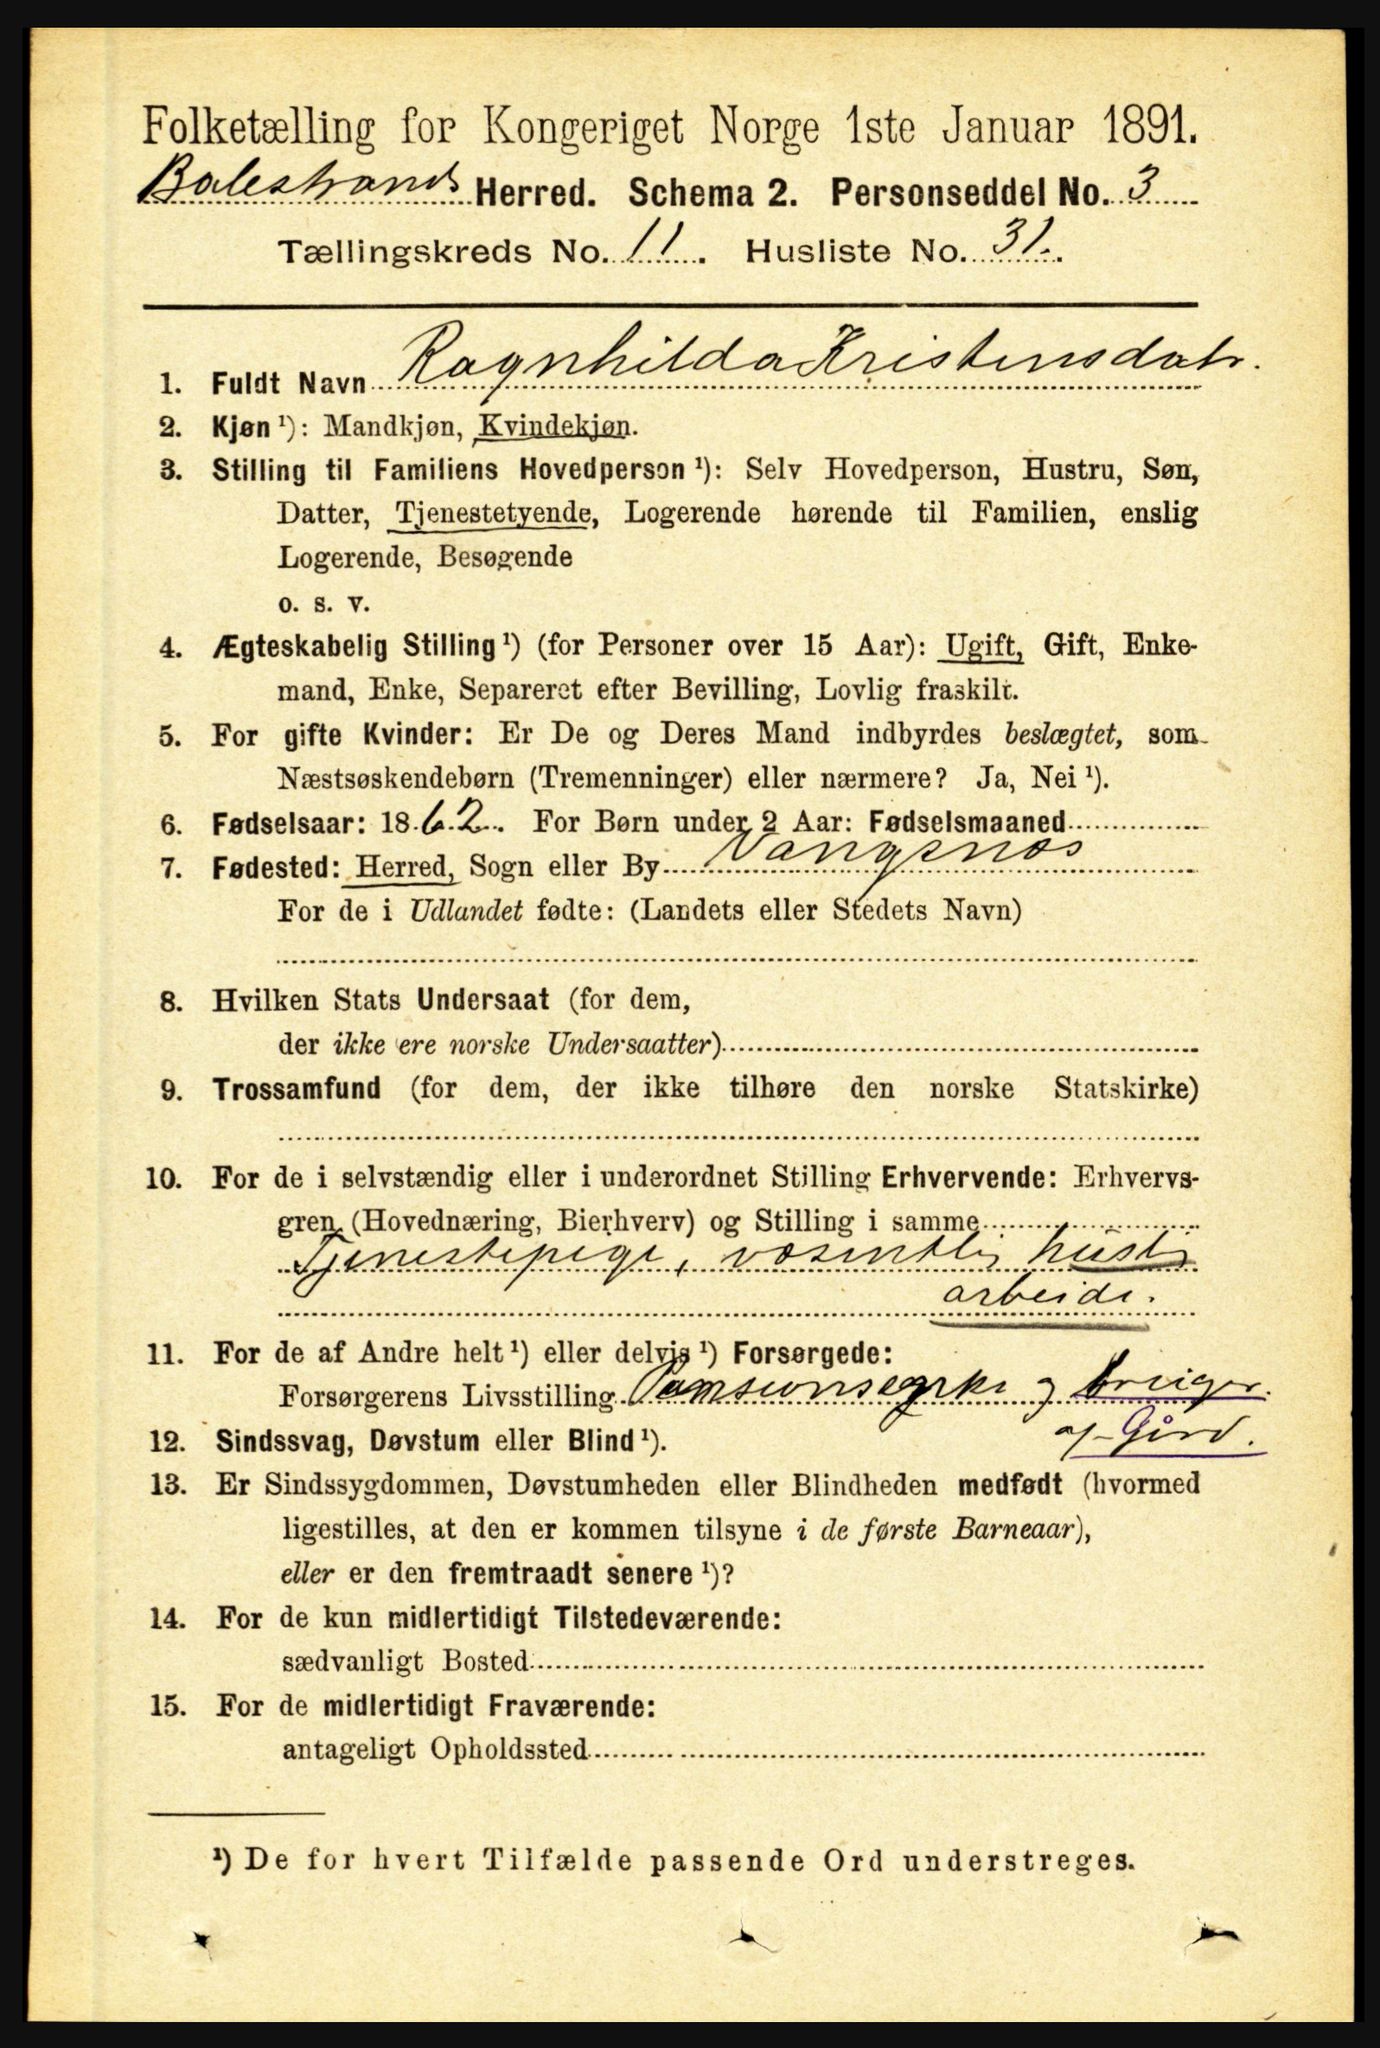 Folketælling for Kongeriget Norge 1ste Januar 1891.
Balestrands Herred. Schema 2. Personseddel No. 3
Tællingskreds No. 11. Husliste No. 31.
1. Fuldt Navn Ragnhilda Kristensdatr.
2. Kjøn ¹): Mandkjøn, Kvindekjøn.
3. Stilling til Familiens Hovedperson ¹): Selv Hovedperson, Hustru, Søn,
Datter, Tjenestetyende, Logerende hørende til Familien, enslig
Logerende, Besøgende
o. s. v.
4. Ægteskabelig Stilling ¹) (for Personer over 15 Aar): Ugift, Gift, Enke-
mand, Enke, Separeret efter Bevilling, Lovlig fraskilt.
5. For gifte Kvinder: Er De og Deres Mand indbyrdes beslægtet, som
Næstsøskendebørn (Tremenninger) eller nærmere? Ja, Nei ¹).
6. Fødselsaar: 1862. For Børn under 2 Aar: Fødselsmaaned
7. Fødested: Herred, Sogn eller By Vangsnæs
For de i Udlandet fødte: (Landets eller Stedets Navn)
8. Hvilken Stats Undersaat (for dem,
der ikke ere norske Undersaatter)
9. Trossamfund (for dem, der ikke tilhøre den norske Statskirke)
10. For de i selvstændig eller i underordnet Stilling Erhvervende: Erhvervs-
gren (Hovednæring, Bierhverv) og Stilling i samme
Tjenestepige, væsentlig huslig
arbeide.
11. For de af Andre helt ¹) eller delvis ¹) Forsørgede:
Forsørgerens Livsstilling og bruiger
af Gård.
12. Sindssvag, Døvstum eller Blind ¹).
13. Er Sindssygdommen, Døvstumheden eller Blindheden medfødt (hvormed
ligestilles, at den er kommen tilsyne i de første Barneaar),
eller er den fremtraadt senere ¹)?
14. For de kun midlertidigt Tilstedeværende:
sædvanligt Bosted
15. For de midlertidigt Fraværende:
antageligt Opholdssted
¹) De for hvert Tilfælde passende Ord understreges.